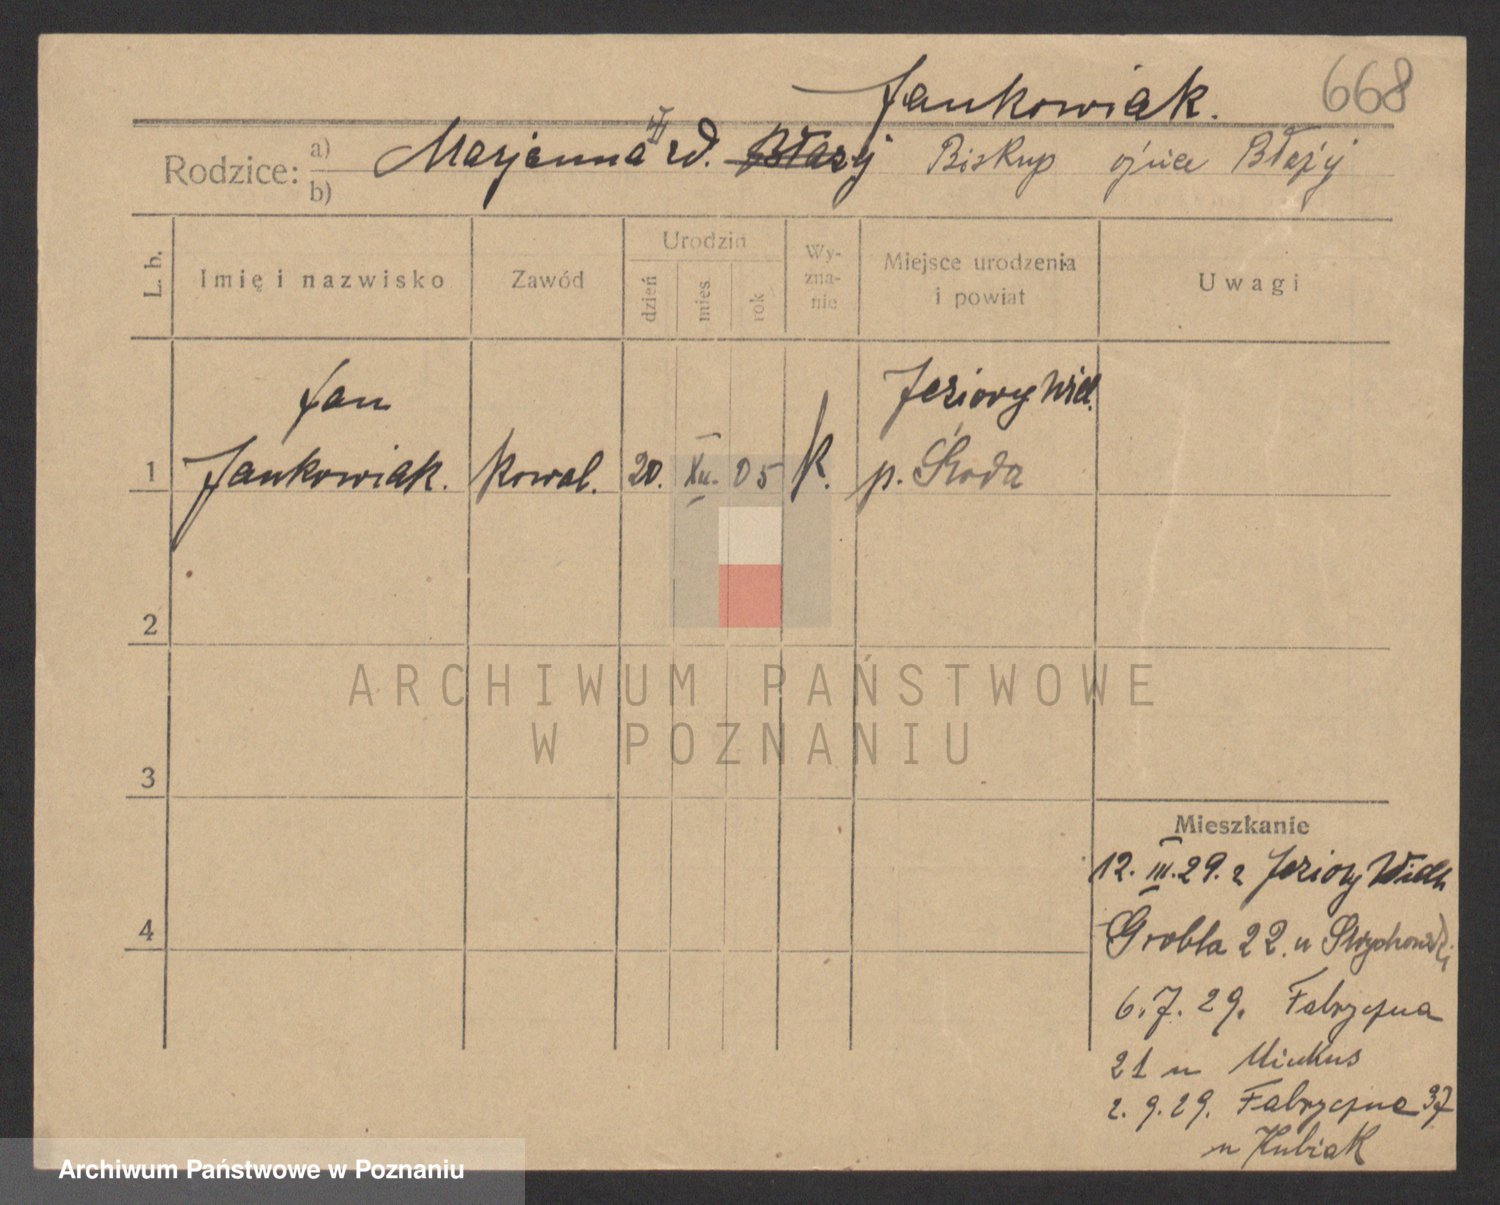 668
Jankowiak.
Rodzice: a) b) Marjanna zd. Błazej Biskup ojciec Błażej
L. b. Imię i nazwisko Zawód Urodzin dzień mies. rok Wy-zna-nie Miejsce urodzenia i powiat Uwagi
Jan Jeziory Wiel.
1 Jankowiak. Kowal. 20. XII. 05 k. p. Środa
2
ARCHIWUM PAŃSTWOWE
W POZNANIU
3
Mieszkanie
12. III. 29. z Jeziory Wielk
4 Grobla 22. u
6.7.29. Fabryczna
21 u Minkus
2.9.29. Fabryczna 37
u Kubiak
Archiwum Państwowe w Poznaniu